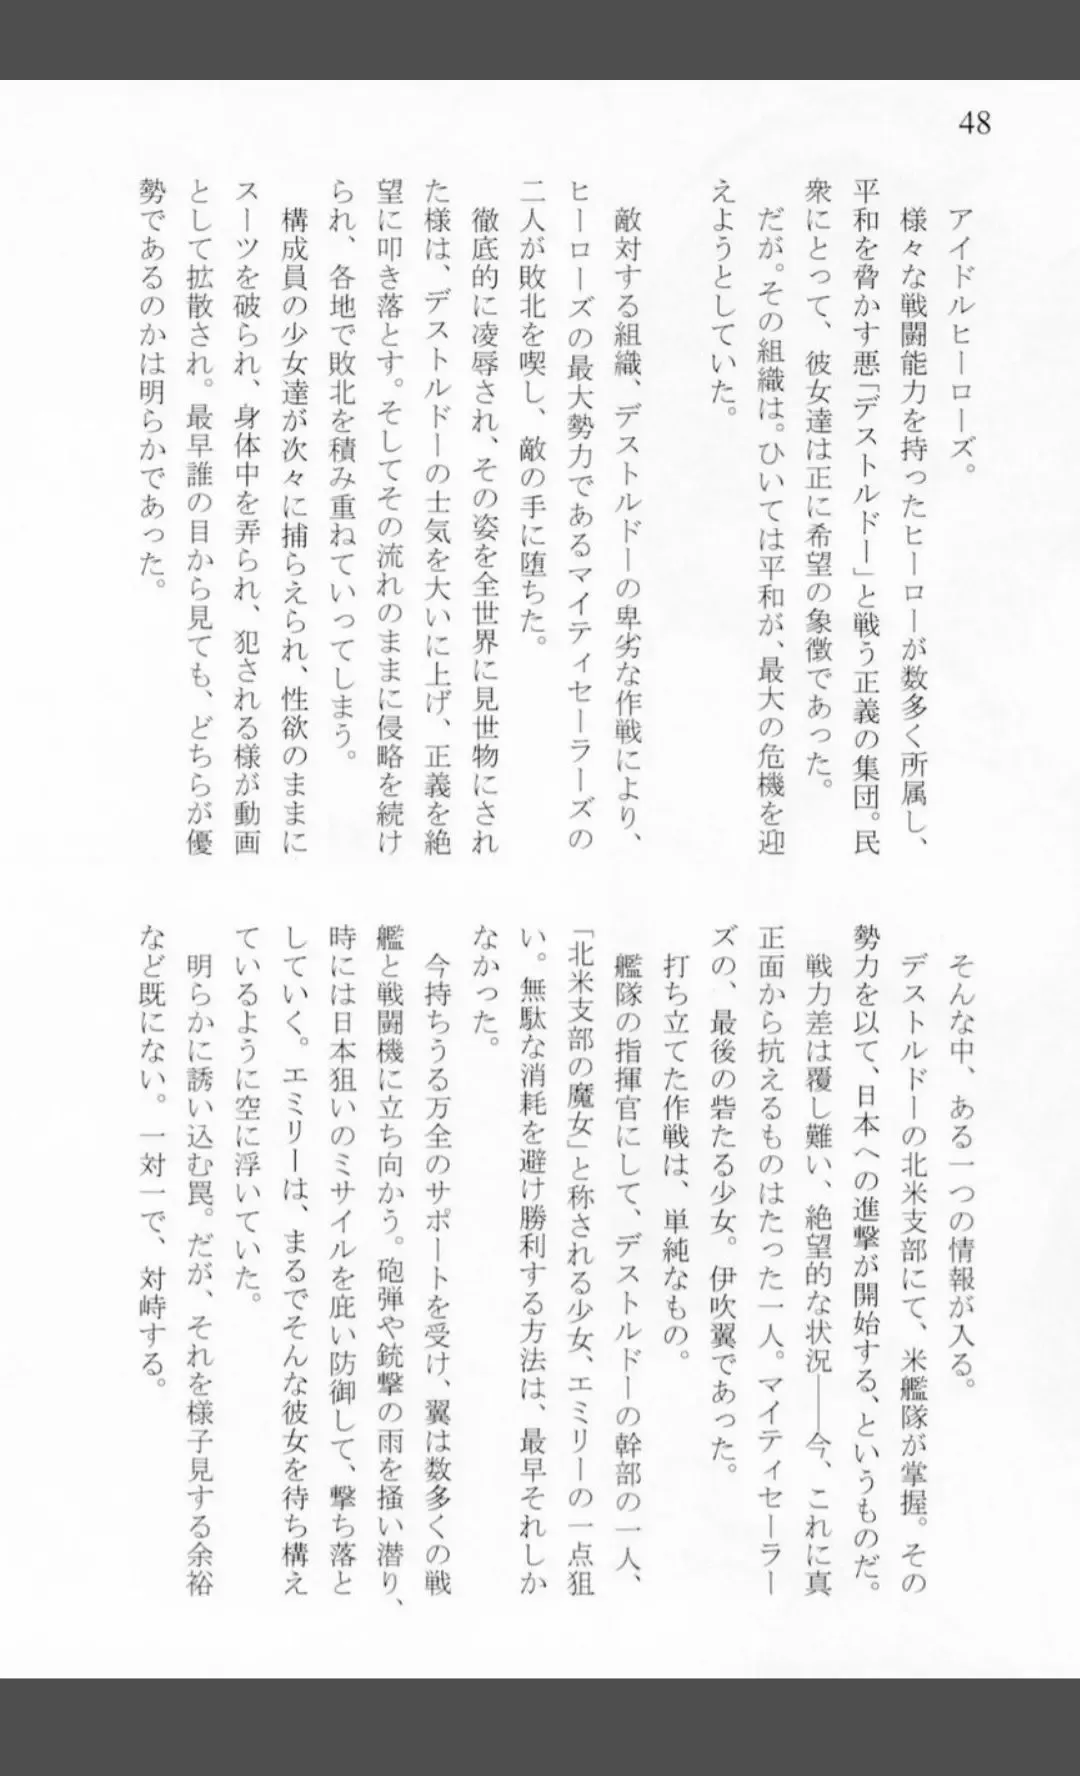 48
アイドルヒーローズ。
様々な戦闘能力を持ったヒーローが数多く所属し、
平和を脅かす悪「デストルドー」と戦う正義の集団。民
衆にとって、彼女達は正に希望の象徴であった。
だが。その組織は。ひいては平和が、最大の危機を迎
えようとしていた。
敵対する組織、デストルドーの卑劣な作戦により、
ヒーローズの最大勢力であるマイティセーラーズの
二人が敗北を喫し、敵の手に堕ちた。
として拡散され。最早誰の目から見ても、どちらが優
勢であるのかは明らかであった。
そんな中、ある一つの情報が入る。
デストルドーの北米支部にて、米艦隊が掌握。その
勢力を以て、日本への進撃が開始する、というものだ。
戦力差は覆し難い、絶望的な状況――今、これに真
正面から抗えるものはたった一人。マイティセーラー
ズの、最後の砦たる少女。伊吹翼であった。
打ち立てた作戦は、単純なもの。
艦隊の指揮官にして、デストルドーの幹部の一人、
「北米支部の魔女」と称される少女、エミリーの一点狙
い。無駄な消耗を避け勝利する方法は、最早それしか
なかった。
今持ちうる万全のサポートを受け、翼は数多くの戦
艦と戦闘機に立ち向かう。砲弾や銃撃の雨を掻い潜り、
時には日本狙いのミサイルを庇い防御して、撃ち落と
していく。エミリーは、まるでそんな彼女を待ち構え
ているように空に浮いていた。
明らかに誘い込む罠。だが、それを様子見する余裕
など既にない。一対一で、対峙する。